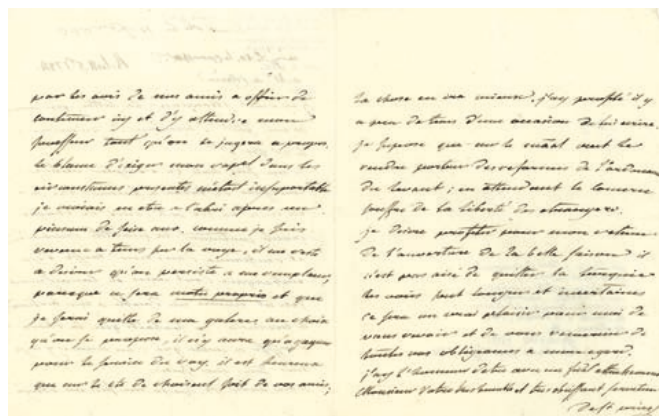 par les avis de nos amis a offrir de
continuer icy et d'y attendre mon
successeur tant qu'on le jugera a propos.
le blame d'exiger mon rapel dans les
circonstances presentes m'etait insuportable
je croiais en etre a l'abri apres un
de seize ans. comme je suis
revenu a tems sur la voye, il me reste
a desirer qu'on persiste a me remplacer,
parceque ce sera motu proprio et que
je serai quitte de ma galere au choix
qu'on se propose, il n'y aura qu'a gagner
pour le service du roy. il est heureux
que M. le Cte de choiseul soit de vos amis;
la chose en ira mieux. j'ay profité il y
a peu de tems d'une occasion de lui ecrire.
je supose que M. le veut le
rendre porteur des reformes de l'ordonnance
du levant; en attendant le commerce
souffre de la liberté des etrangers.
je desire profiter pour mon retour
de l'ouverture de la belle saison il
n'est pas aisé de quitter la turquie
les voies sont longues et incertaines
ce sera un vrai plaisir pour moi de
vous revoir et de vous remercier de
toutes vos obligeances a mon egard.
j'ay l'honneur d'etre avec un fidel attachement
Monsieur Votre tres humble et tres obeissant serviteur
de St. priest